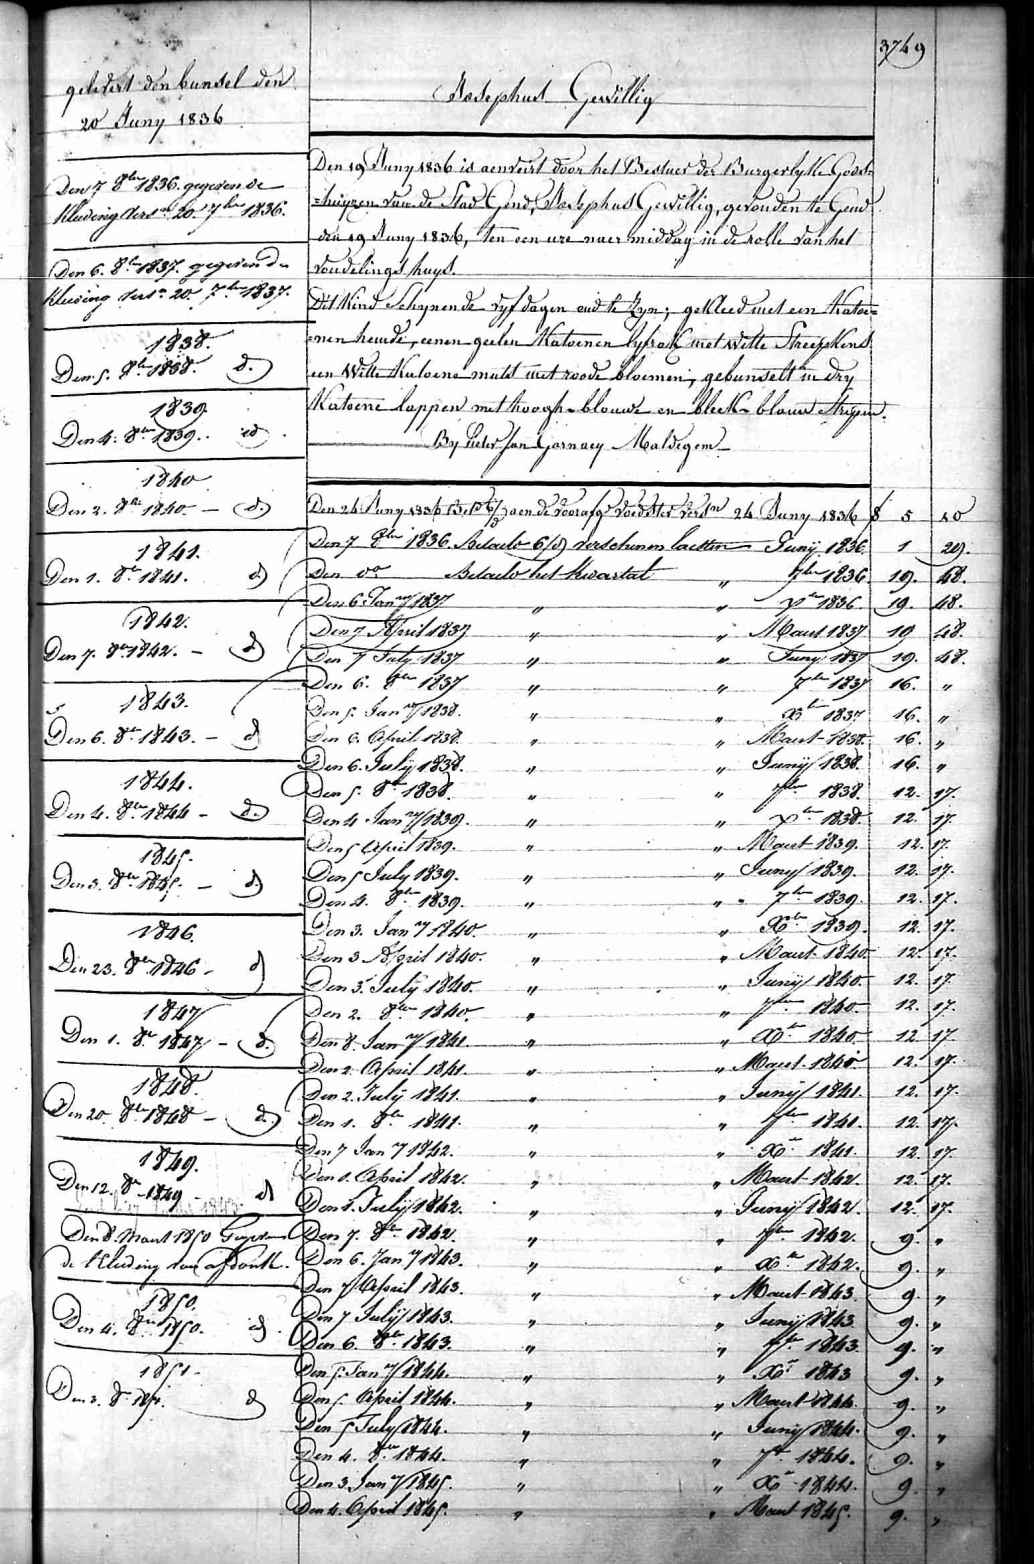 3749
gelevert den bunsel den
20 Juny 1836
Josephus Gewillig
Den 7 8ber 1836. gegeven de
Kleeding versn 20. 7ber 1836.
Den 6. 8ber 1837. gegeven de
Kleeding versn 20. 7ber 1837.
1838.
Den 5. 8ber 1838. d.
1839
Den 4. 8ber 1839. id.
1840
Den 2. 8ber 1840. – d.
1841.
Den 1. 8er 1841. d
1842.
Den 7. 8er 1842. – d
1843.
Den 6. 8er 1843. – d
1844.
Den 4. 8ber 1844 – d.
1845.
Den 3. 8ber 1845. – d.
1846.
Den 23. 8ber 1846 – d
1847
Den 1. 8er 1847 – d.
1848.
Den 20. 8er 1848 – d.
1849.
Den 12. 8er 1849 – d
Den 8. Maart 1850 Gegeven
de Kleeding van
1850.
Den 4. 8er 1850. d.
1851.
Den 3. 8er 1851. d
Den 19 Juny 1836 is aenveirt door het Bestuer der Burgerlyke Gods=
=huyzen van de Stad Gend, Josephus Gewillig, gevonden te Gend
den 19 Juny 1836, ten een ure naer middag in de rolle van het
vondelings huys.
Dit Kind Schynende vyf dagen oud te Zyn; gekleed met een Katoe=
=nen hemde, eenen geelen Katoenen lyfrok met Witte Streepkens
een Witte Katoene muts met roode bloemen; gebunselt in dry
Katoene lappen met hoogh-blouwe en bleek-blauw strepen.
By Pieter Jan Gornaey Maldegem
Den 24 Juny 1836 aen de voedster versn 24 Juny 1836 5 10
Den 7 8ber 1836. Betaelt 6/d verschenen laetten Juny 1836. 1 29.
Den do Betaelt het kwartal " 7ber 1836. 19. 48.
Den 6 Jany 1837 " " Xer 1836. 19. 48.
Den 7 April 1837 " " Maert 1837 19 48.
Den 7 July 1837 " " Juny 1837 19. 48.
Den 6. 8ber 1837 " " 7ber 1837 16. "
Den 5. Jany 1838. " " Xber 1837 16. "
Den 6. April 1838. " " Maert 1838. 16. "
Den 6. July 1838. " " Juny 1838. 16. "
Den 5. 8er 1838. " " 7ber 1838. 12. 17.
Den 4 Jany 1839. " " Xber 1838. 12. 17.
Den 5 April 1839. " " Maert 1839. 12. 17.
Den 5 July 1839. " " Juny 1839. 12. 17.
Den 4. 8ber 1839. " " 7ber 1839. 12. 17.
Den 3. Jany 1840. " " Xber 1839. 12. 17.
Den 3 April 1840. " " Maert 1840. 12. 17.
Den 3. July 1840. " " Juny 1840. 12. 17.
Den 2. 8ber 1840. " " 7ber 1840. 12. 17.
Den 8. Jany 1841. " " Xber 1840. 12 17.
Den 2. April 1841. " " Maert 1841. 12. 17.
Den 2. July 1841. " " Juny 1841. 12. 17.
Den 1. 8ber 1841. " " 7ber 1841. 12. 17.
Den 7 Jany 1842. " " Xr 1841. 12. 17.
Den 1. April 1842. " " Maert 1842. 12. 17.
Den 1. July 1842. " " Juny 1842. 12. 17.
Den 7. 8er 1842. " " 7ber 1842. 9. "
Den 6. Jany 1843. " " Xer 1842. 9. "
Den 7 April 1843. " " Maert 1843. 9. "
Den 7 July 1843. " " Juny 1843. 9. "
Den 6. 8er 1843. " " 7er 1843. 9. "
Den 5. Jany 1844. " " Xr 1843 9. "
Den 5. April 1844. " " Maert 1844. 9. "
Den 5 July 1844. " " Juny 1844. 9. "
Den 4. 8er 1844. " " 7er 1844. 9. "
Den 3 Jany 1845. " " Xr 1844. 9. "
Den 4. April 1845. " " Maert 1845. 9. "